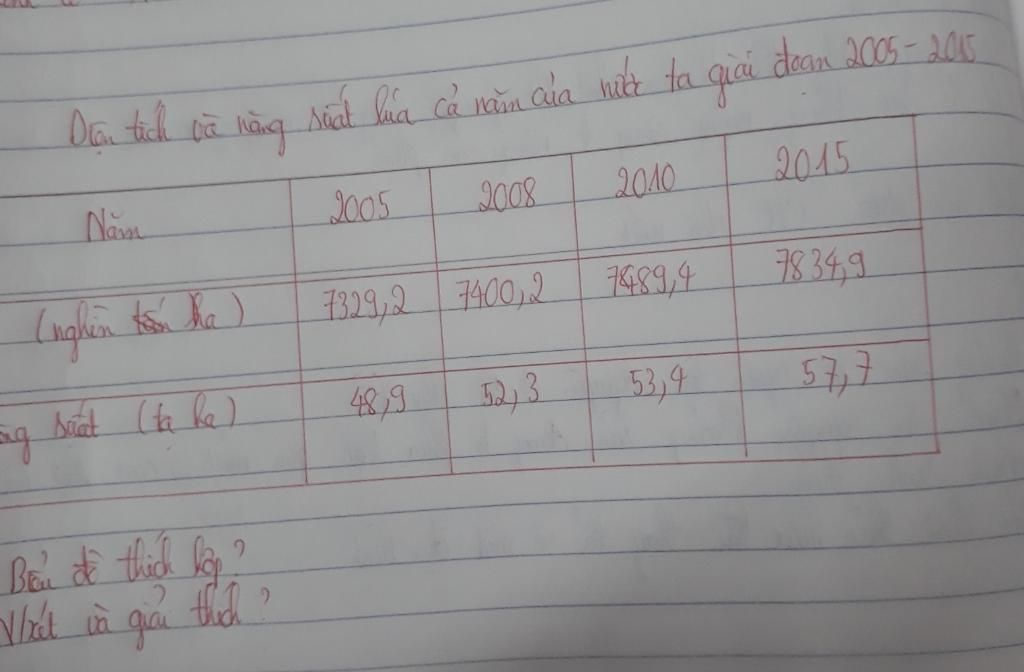 Diện tích và năng suất lúa cả năm của nước ta giai đoạn 2005-2015
Năm 2005 2008 2010 2015
(nghìn ha) 7329,2 7400,2 7489,4 7834,9
suất (tạ ha) 48,9 52,3 53,4 57,7
Biểu đồ thích hợp?
N/xét và giải thích?